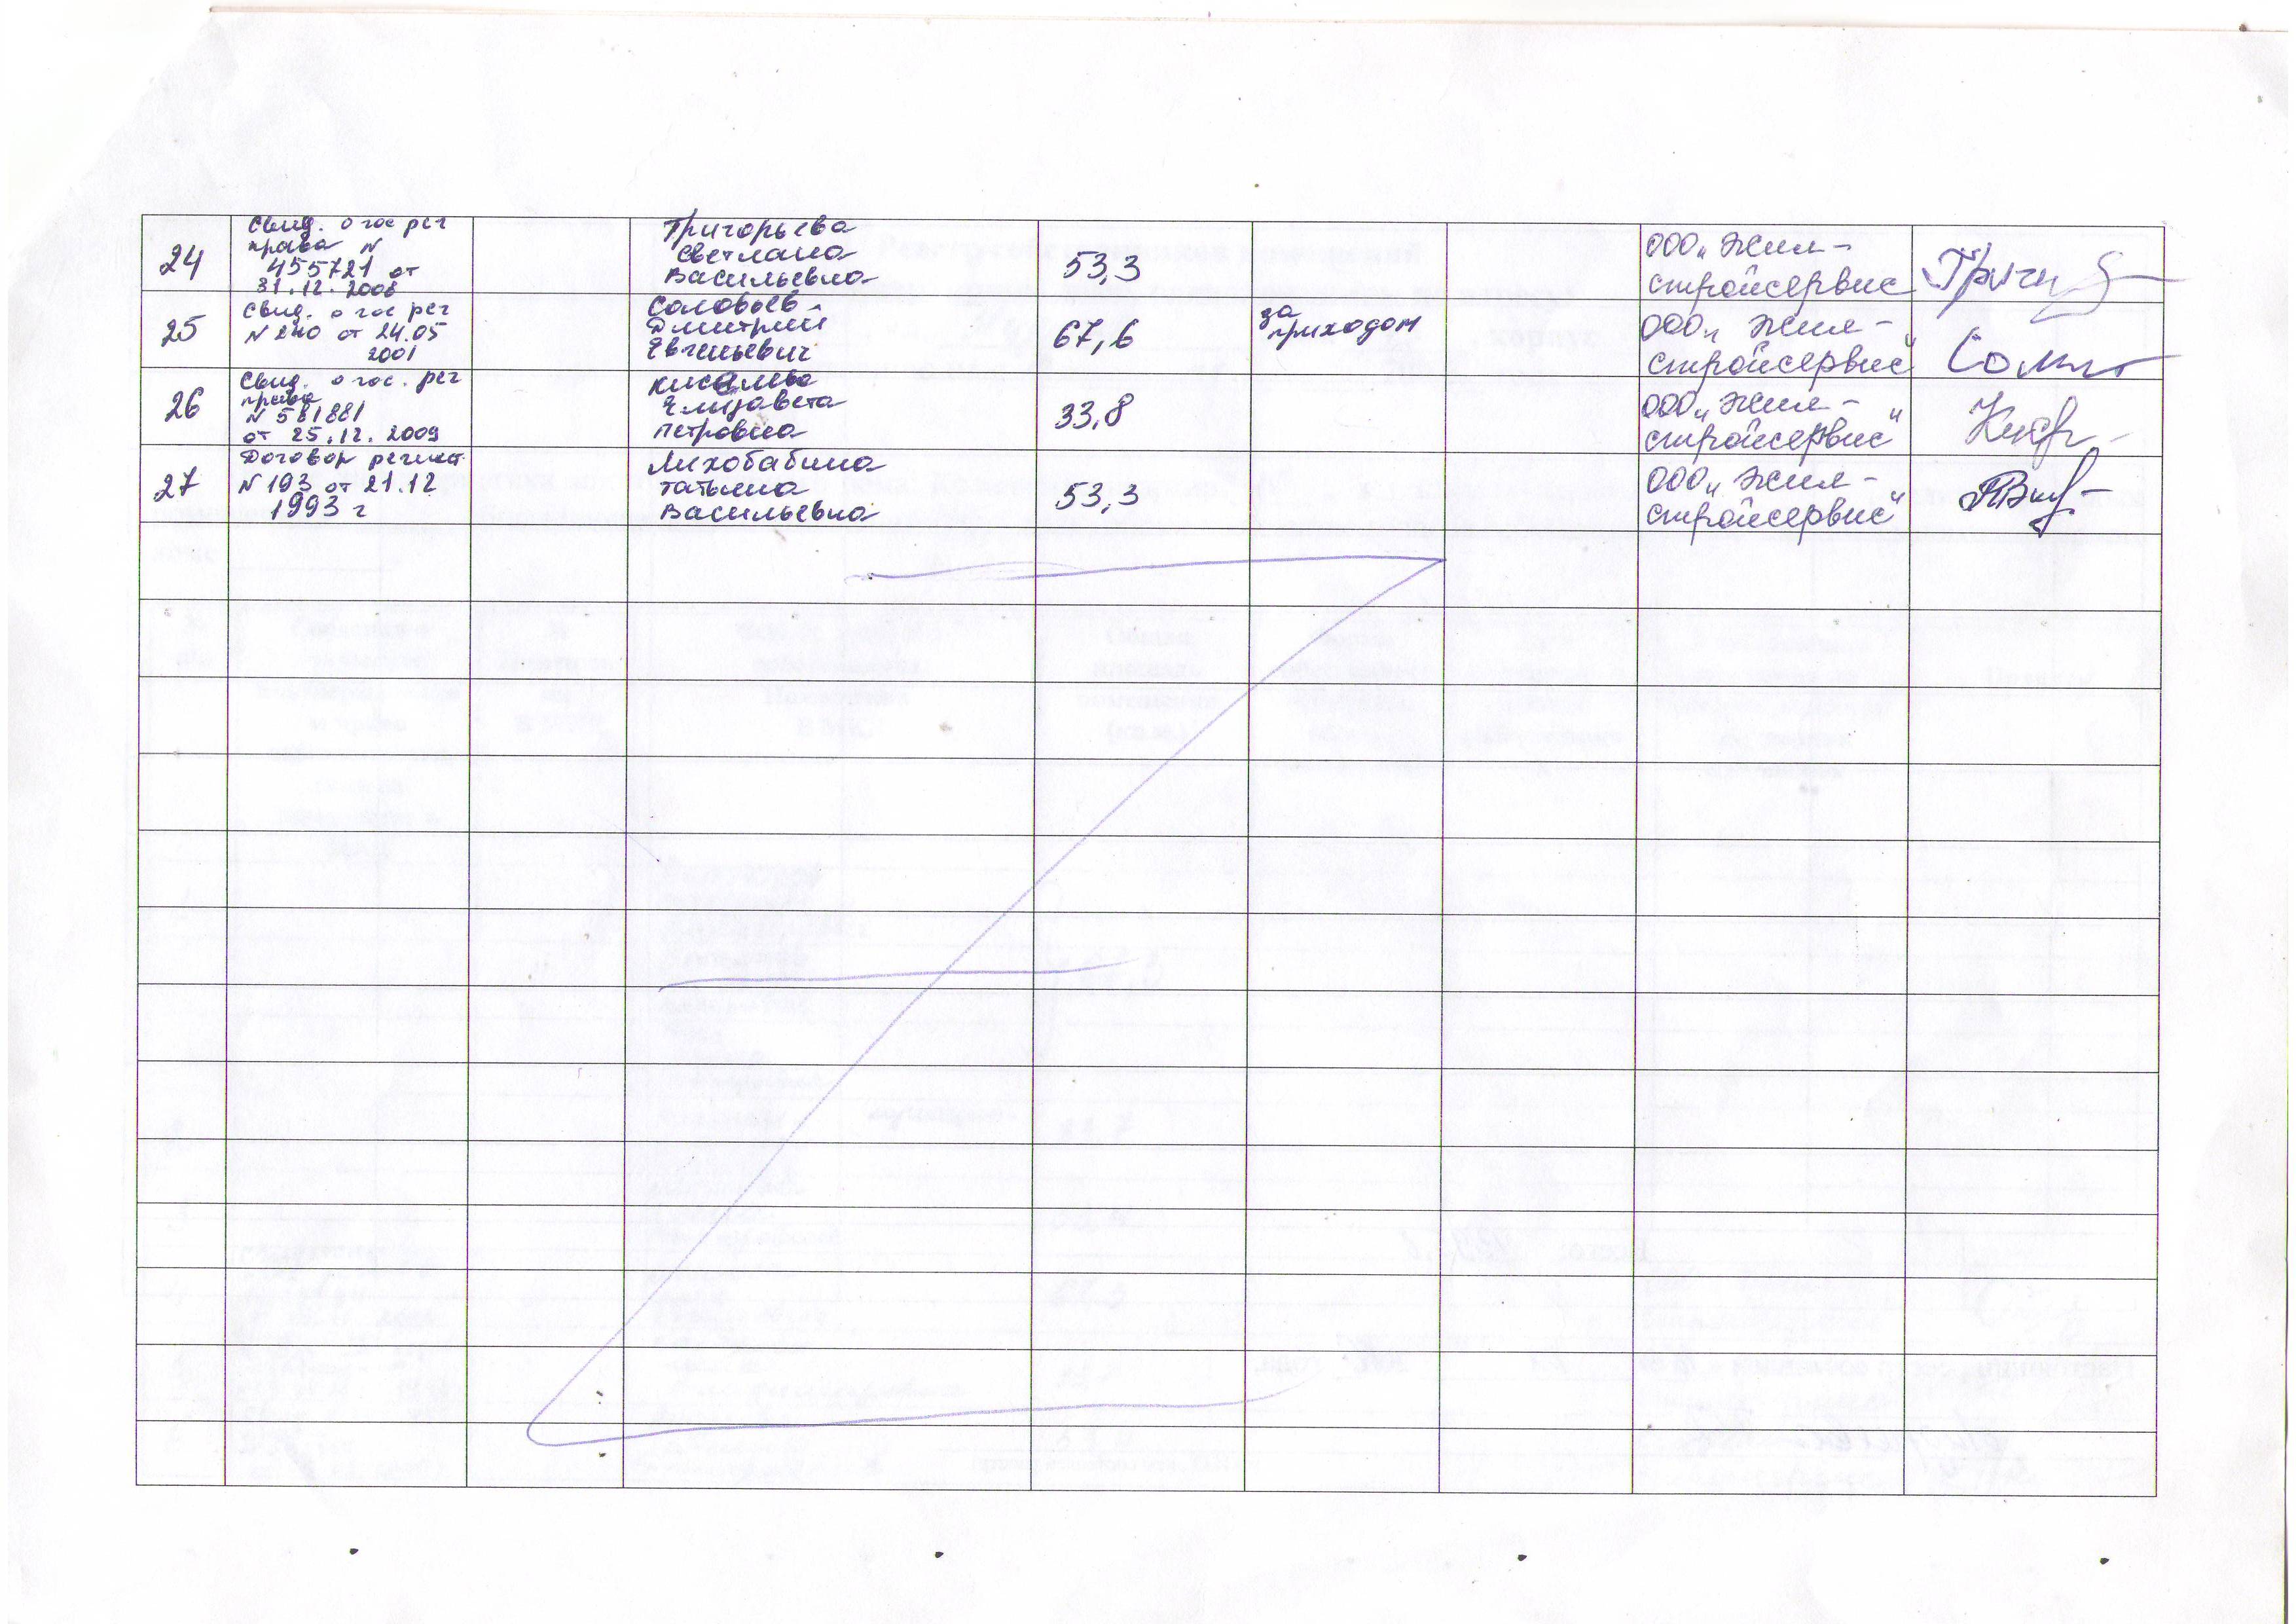 24
Свид. о гос рег
права N
455721 от
31.12.2008
Григорьева
Светлана
Васильевна
53,3
ООО "Жил-
стройсервис
25
Свид. о гос рег
N 240 от 24.05
2001
Соловьев
Дмитрий
Евгеньевич
67,6
за
приходом
ООО "Жил-
стройсервис"
26
Свид. о гос. рег
права
N 581881
от 25.12.2009
Киселева
Елизавета
Петровна
33,8
ООО "Жил-
стройсервис"
27
Договор регист
N 193 от 21.12
1993 г
Лихобабина
Татьяна
Васильевна
53,3
ООО "Жил-
стройсервис"